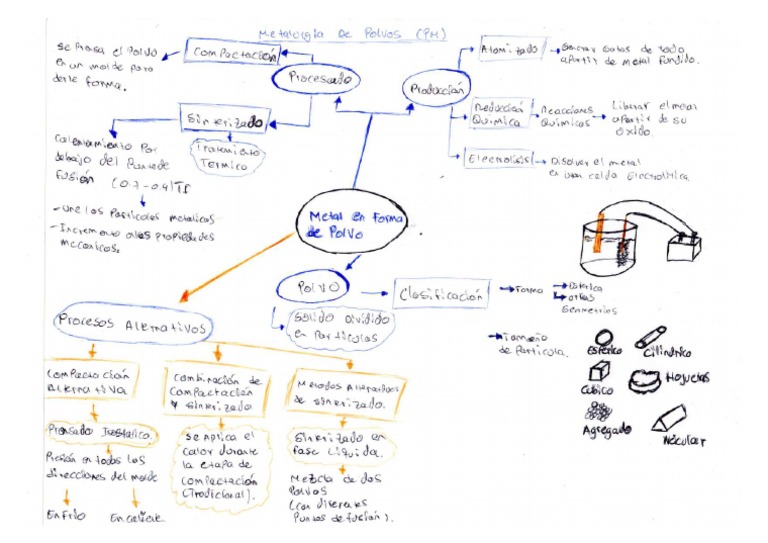 Metalurgia De Polvos (PM)
se Prensa el Polvo
en un molde para
darle forma.
Compactación
Procesado
Sinterizado
Tratamiento
Termico
Calentamiento Por
debajo del Punto de
Fusión (0.7-0.9)Tf
- Une las Particulas metalicas
- Incremento a las propiedades
mecanicas.
Producción
Atomizado
Generar Gotas de todo
a partir de metal fundido.
Reducción
Quimica
Reacciones
Quimicas
Liberar el metal
a partir de su
oxido.
Electrolisis
Disolver el metal
en una celda Electrolitica.
Metal en Forma
de Polvo
Polvo
Solido dividido
en Particulas
Clasificación
Forma
Esferica
otras
Geometrias
Tamaño
de Particula.
Esferico
Cilindrico
Cubico
Hojuelas
Agregado
Acicular
Procesos Alternativos
Compactación
Alternativa
Prensado Isostatico.
Presión en todas las
direcciones del molde
En Frio
En caliente
Combinación de
Compactación
y sinterizado
se aplica el
calor durante
la etapa de
Compactación
(Tradicional).
Metodos Alternativos
de sinterizado.
Sinterizado en
fase Liquida.
Mezcla de dos
Polvos
(con diferentes
Puntos de fusión).